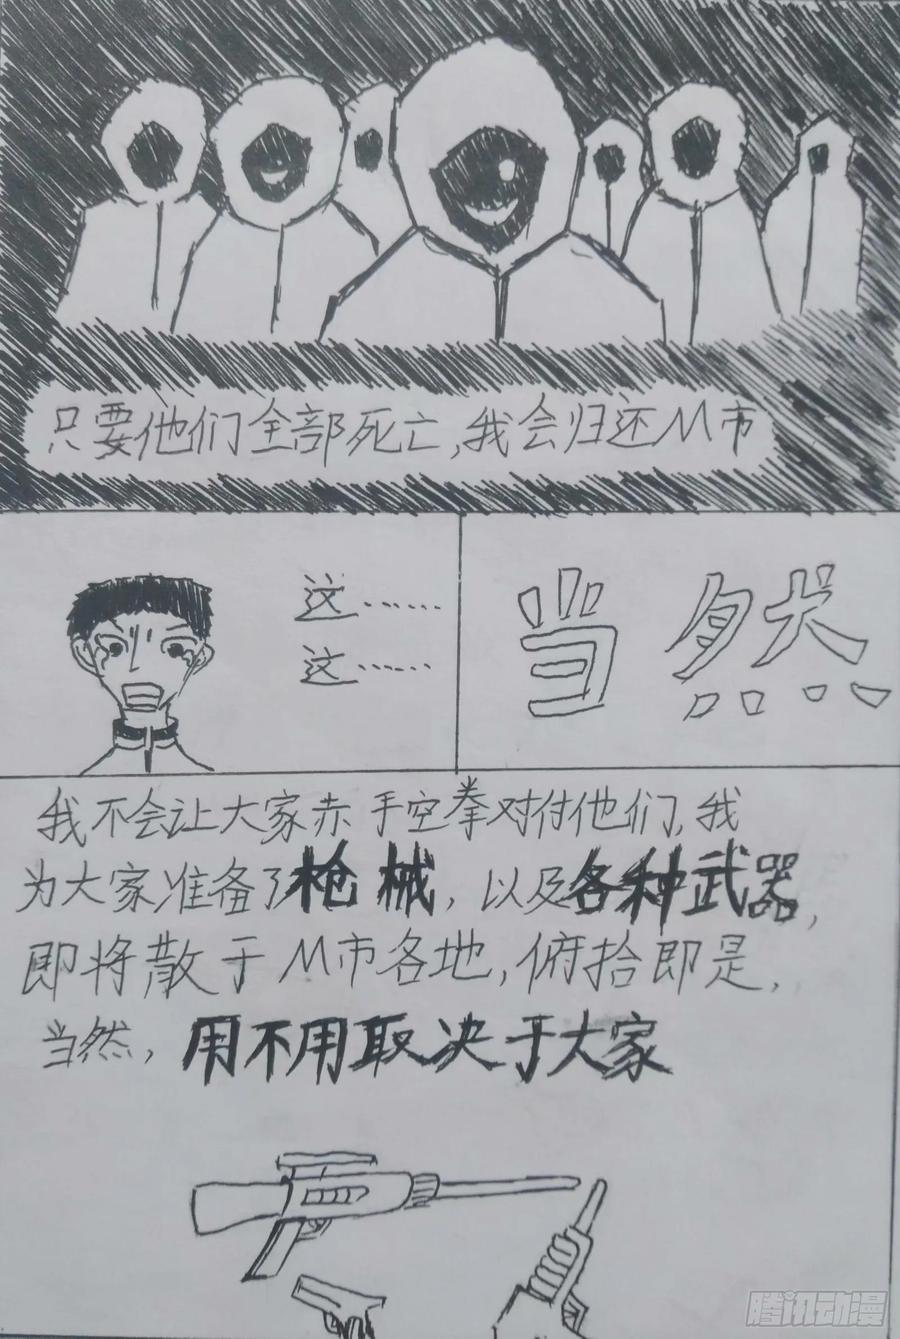 只要他们全部死亡,我会归还M市
这……
这……
当然
我不会让大家赤手空拳对付他们,我
为大家准备了枪械,以及各种武器,
即将散于M市各地,俯拾即是,
当然,用不用取决于大家
腾讯动漫